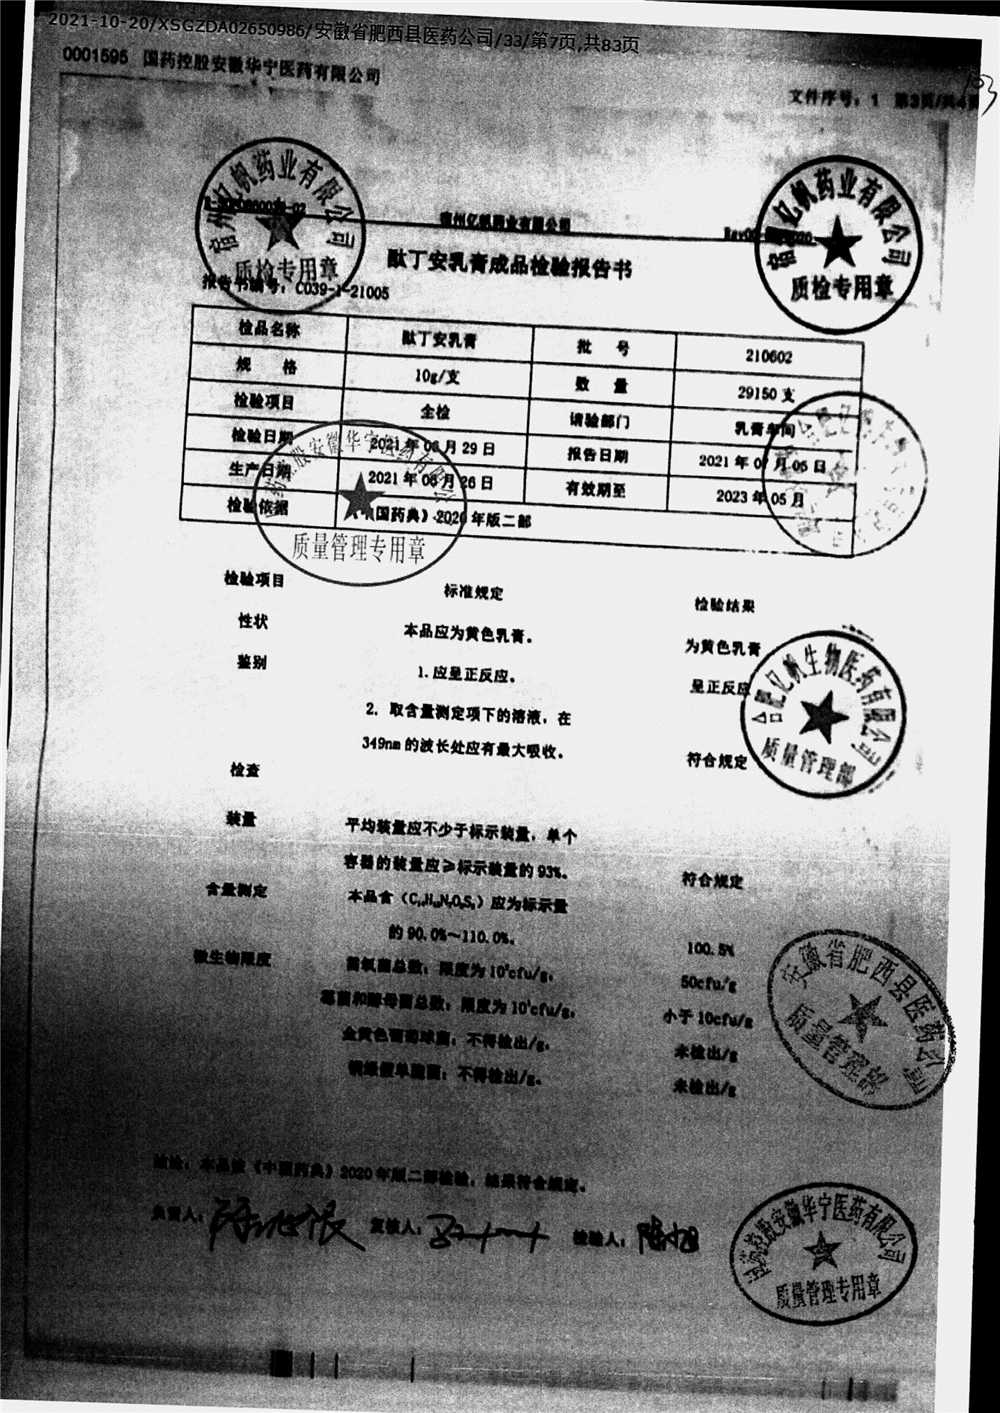 2021-10-20/XSGZDA02650986/安徽省肥西县医药公司/33/第7页,共83页
0001595 国药控股安徽华宁医药有限公司
文件序号：1 第3页/共4页
103
宿州亿帆药业有限公司
质检专用章
宿州亿帆药业有限公司
宿州亿帆药业有限公司
质检专用章
酞丁安乳膏成品检验报告书
报告书编号：C039-1-21005
检品名称 酞丁安乳膏 批 号 210602
规 格 10g/支 数 量 29150 支
检验项目 全检 请验部门 乳膏车间
检验日期 2021 年 06 月 29 日 报告日期 2021 年 07 月 05 日
生产日期 2021 年 06 月 26 日 有效期至 2023 年 05 月
检验依据 《中国药典》2020 年版二部
国药控股安徽华宁医药有限公司
质量管理专用章
检验项目 标准规定 检验结果
性状 本品应为黄色乳膏。 为黄色乳膏
鉴别 1. 应呈正反应。 呈正反应
2. 取含量测定项下的溶液，在
349nm 的波长处应有最大吸收。 符合规定
合肥亿帆生物医药有限公司
质量管理部
检查
装量 平均装量应不少于标示装量，单个
容器的装量应≥标示装量的 93%。 符合规定
含量测定 本品含 应为标示量
的 90.0%～110.0%。 100.5%
微生物限度 需氧菌总数：限度为 10²cfu/g。 50cfu/g
霉菌和酵母菌总数：限度为 10¹cfu/g。 小于 10cfu/g
金黄色葡萄球菌：不得检出/g。 未检出/g
铜绿假单胞菌：不得检出/g。 未检出/g
安徽省肥西县医药公司
质量管理部
结论：本品按《中国药典》2020 年版二部检验，结果符合规定。
负责人： 复核人： 检验人：
国药控股安徽华宁医药有限公司
质量管理专用章